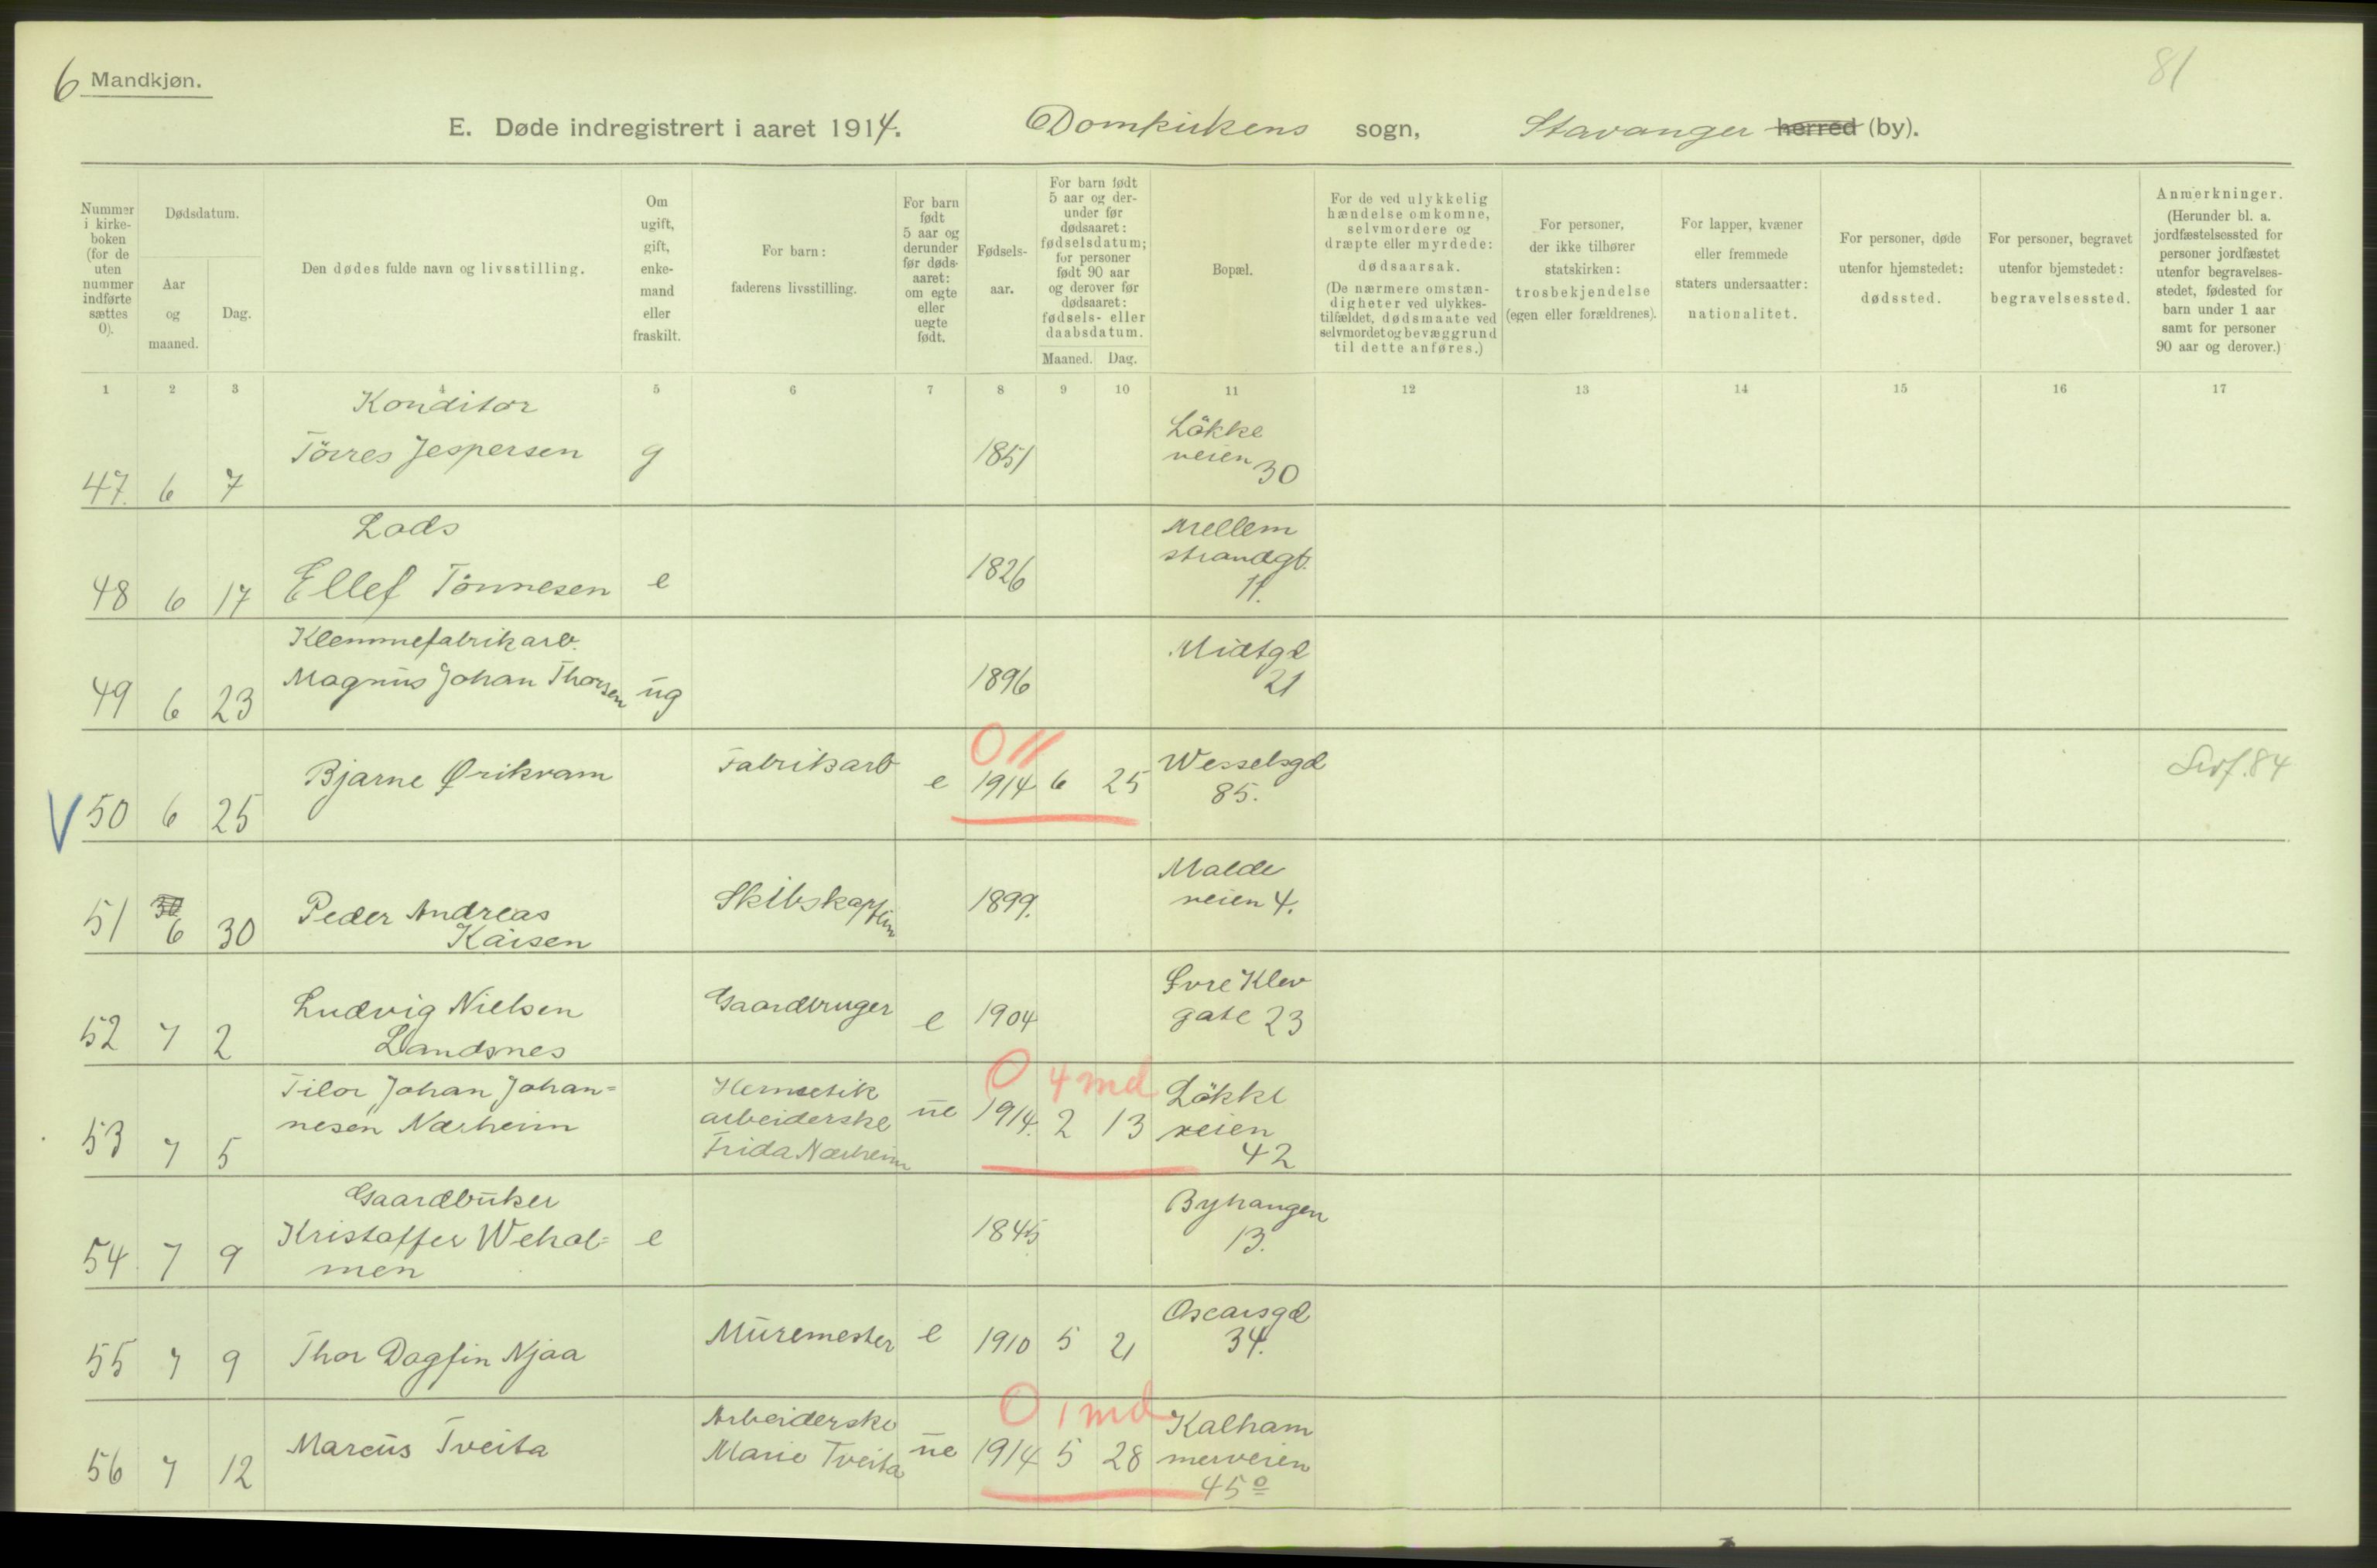 6 Mandkjøn.
81
E. Døde indregistrert i aaret 1914. Domkirkens sogn, Stavanger herred (by).
Nummer i kirke-boken (for de uten nummer indførte sættes 0).
Dødsdatum.
Aar og maaned.
Dag.
Den dødes fulde navn og livsstilling.
Om ugift, gift, enke-mand eller fraskilt.
For barn: faderens livsstilling.
For barn født 5 aar og derunder før døds-aaret: om egte eller uegte født.
Fødsels-aar.
For barn født 5 aar og der-under før dødsaaret: fødselsdatum; for personer født 90 aar og derover før dødsaaret: fødsels- eller daabsdatum.
Maaned. Dag.
Bopæl.
For de ved ulykkelig hændelse omkomne, selvmordere og dræpte eller myrdede: dødsaarsak. (De nærmere omstæn-digheter ved ulykkes-tilfældet, dødsmaate ved selvmordet og bevæggrund til dette anføres.)
For personer, der ikke tilhører statskirken: trosbekjendelse (egen eller forældrenes).
For lapper, kvæner eller fremmede staters undersaatter: nationalitet.
For personer, døde utenfor hjemstedet: dødssted.
For personer, begravet utenfor hjemstedet: begravelsessted.
Anmerkninger. (Herunder bl. a. jordfæstelsessted for personer jordfæstet utenfor begravelses-stedet, fødested for barn under 1 aar samt for personer 90 aar og derover.)
1 2 3 4 5 6 7 8 9 10 11 12 13 14 15 16 17
Konditor
47. 6 7 Törres Jespersen g 1851 Lökke veien 30
Lods
48 6 17 Ellef Tönnesen e 1826 Mellem strandgt. 11.
Klemmefabrikarb.
49 6 23 Magnus Johan Thorsen ug 1896 Midtgd 21
0 11
V 50 6 25 Bjarne Ørikvam Fabrikarb e 1914 6 25 Wesselsgd 85. 84
51 6 30 Peder Andreas Kaisen Skibskaptin 1899. Malde veien 4.
52 7 2 Ludvig Nielsen Landsnes Gaardbruger e 1904 Övre Klev gate 23
0 4 md
53 7 5 Tilor Johan Johan=
nesen Nærheim Hermetik arbeiderske Frida Nærheim ue 1914. 2 13 Lökke veien 42
Gaardbuker
54. 7 9 Kristoffer Wehol=
men e 1845 Byhaugen 13.
55 7 9 Thor Dagfin Njaa Muremester e 1910 5 21 Oscarsgd 34.
0 1 md
56 7 12 Marcus Tveita Arbeiderske Marie Tveita ue 1914 5 28 Kalham merveien 45º